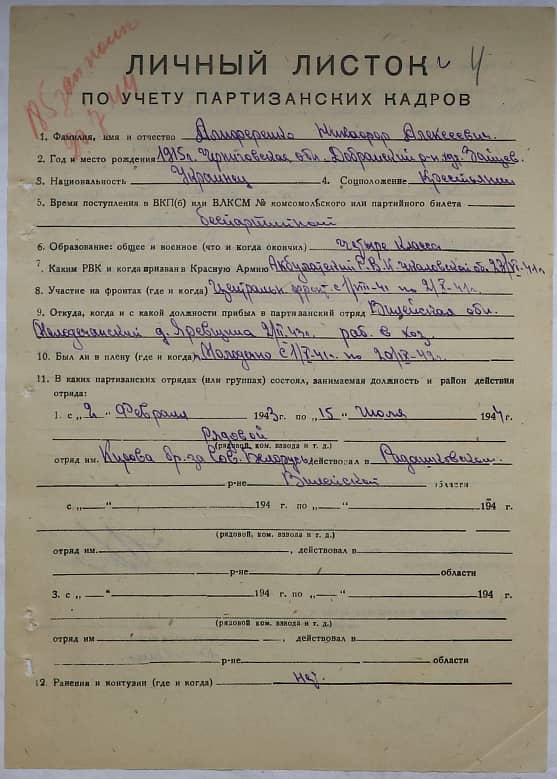 185 зап
4
ЛИЧНЫЙ ЛИСТОК
ПО УЧЕТУ ПАРТИЗАНСКИХ КАДРОВ
1. Фамилия, имя и отчество Алексеевич.
2. Год и место рождения 1915г. Черниговская обл. Добрянский р-н
3. Национальность Украинец 4. Соцположение Крестьянин
5. Время поступления в ВКП(б) или ВЛКСМ № комсомольского или партийного билета
беспартийной
6. Образование: общее и военное (что и когда окончил) четыре класса
7. Каким РВК и когда призван в Красную Армию Акбулакский Р.В.К Чкаловской об.
8. Участие на фронтах (где и когда) Централь фронт с 1/VIII-41 по 2/X-41г.
9. Откуда, когда и с какой должности прибыл в партизанский отряд Вилейская обл.
Молодечанский д. 2/II-43г. раб. в хоз.
10. Был ли в плену (где и когда) Молодечно с по
11. В каких партизанских отрядах (или группах) состоял, занимаемая должность и район действия
отряда:
1. с „2“ Февраля 1943г. по „15“ июля 1944г.
Рядовой
(рядовой, ком. взвода и т. д.)
отряд им. Кирова бр. за Сов. Белорусь действовал в Радашковском
р-не Вилейской области
с „ “ 194 г. по „ “ 194 г.
(рядовой, ком. взвода и т. д.)
отряд им. , действовал в
р-не области
3. с „ “ 194 г. по „ “ 194 г.
(рядовой, ком. взвода и т. д.)
отряд им. , действовал в
р-не области
12. Ранения и контузии (где и когда) нет.